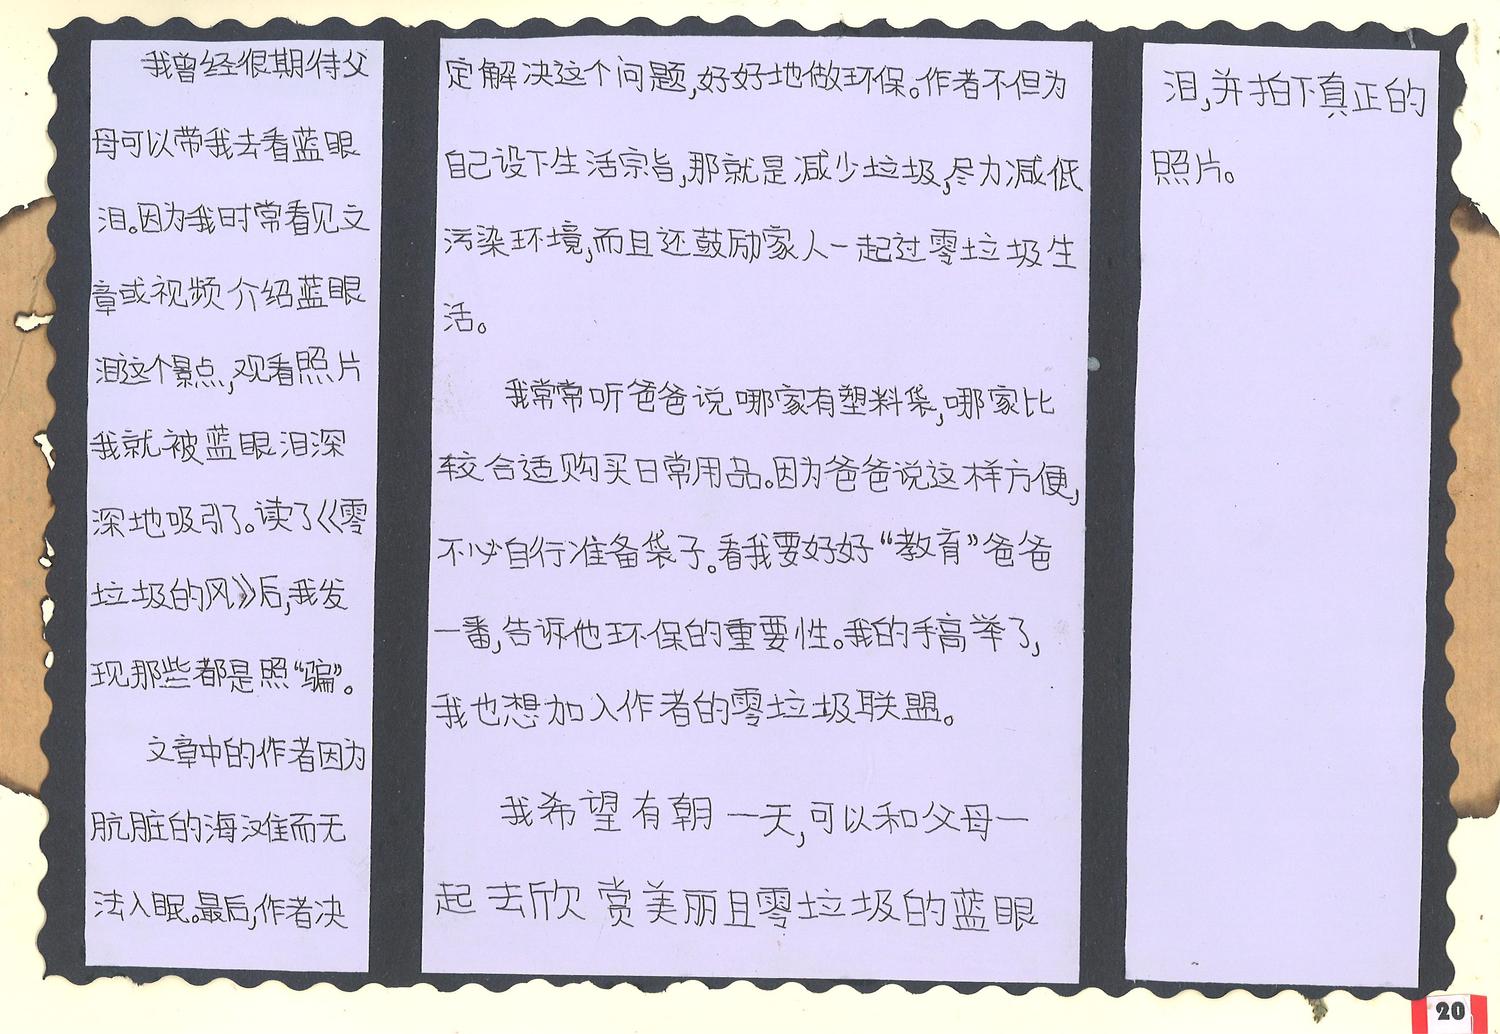 我曾经很期待父
母可以带我去看蓝眼
泪。因为我时常看见文
章或视频介绍蓝眼
泪这个景点，观看照片
我就被蓝眼泪深
深地吸引了。读了《零
垃圾的风》后，我发
现那些都是照“骗”。
文章中的作者因为
肮脏的海滩而无
法入眠。最后，作者决
定解决这个问题，好好地做环保。作者不但为
自己设下生活宗旨，那就是减少垃圾，尽力减低
污染环境，而且还鼓励家人一起过零垃圾生
活。
我常常听爸爸说哪家有塑料袋，哪家比
较合适购买日常用品。因为爸爸说这样方便，
不必自行准备袋子。看我要好好“教育”爸爸
一番，告诉他环保的重要性。我的手高举了，
我也想加入作者的零垃圾联盟。
我希望有朝一天，可以和父母一
起去欣赏美丽且零垃圾的蓝眼
泪，并拍下真正的
照片。
20